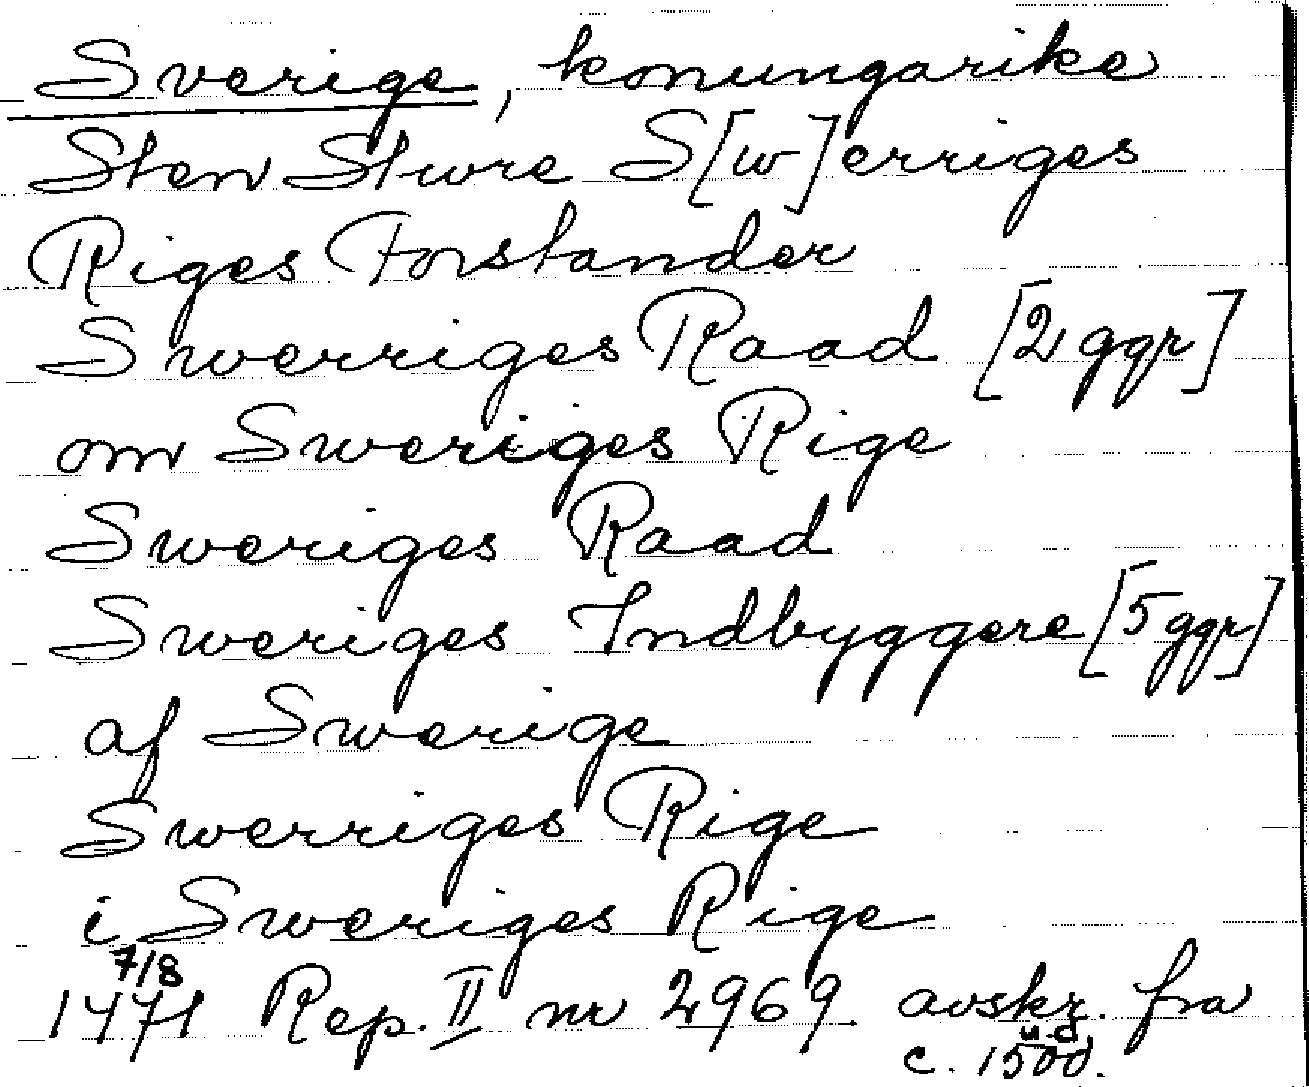 Sverige, konungarike
Sten Stwre S[w]erriges
Riges Forstander
Swerriges Raad [2 ggr]
om Sweriges Rige
Sweriges Raad
Sweriges Indbyggere [5 ggr]
af Swerige
Swerriges Rige
i Sweriges Rige
7/8
1471 Rep. II nr 2969 avskr. fra
c. 1500.